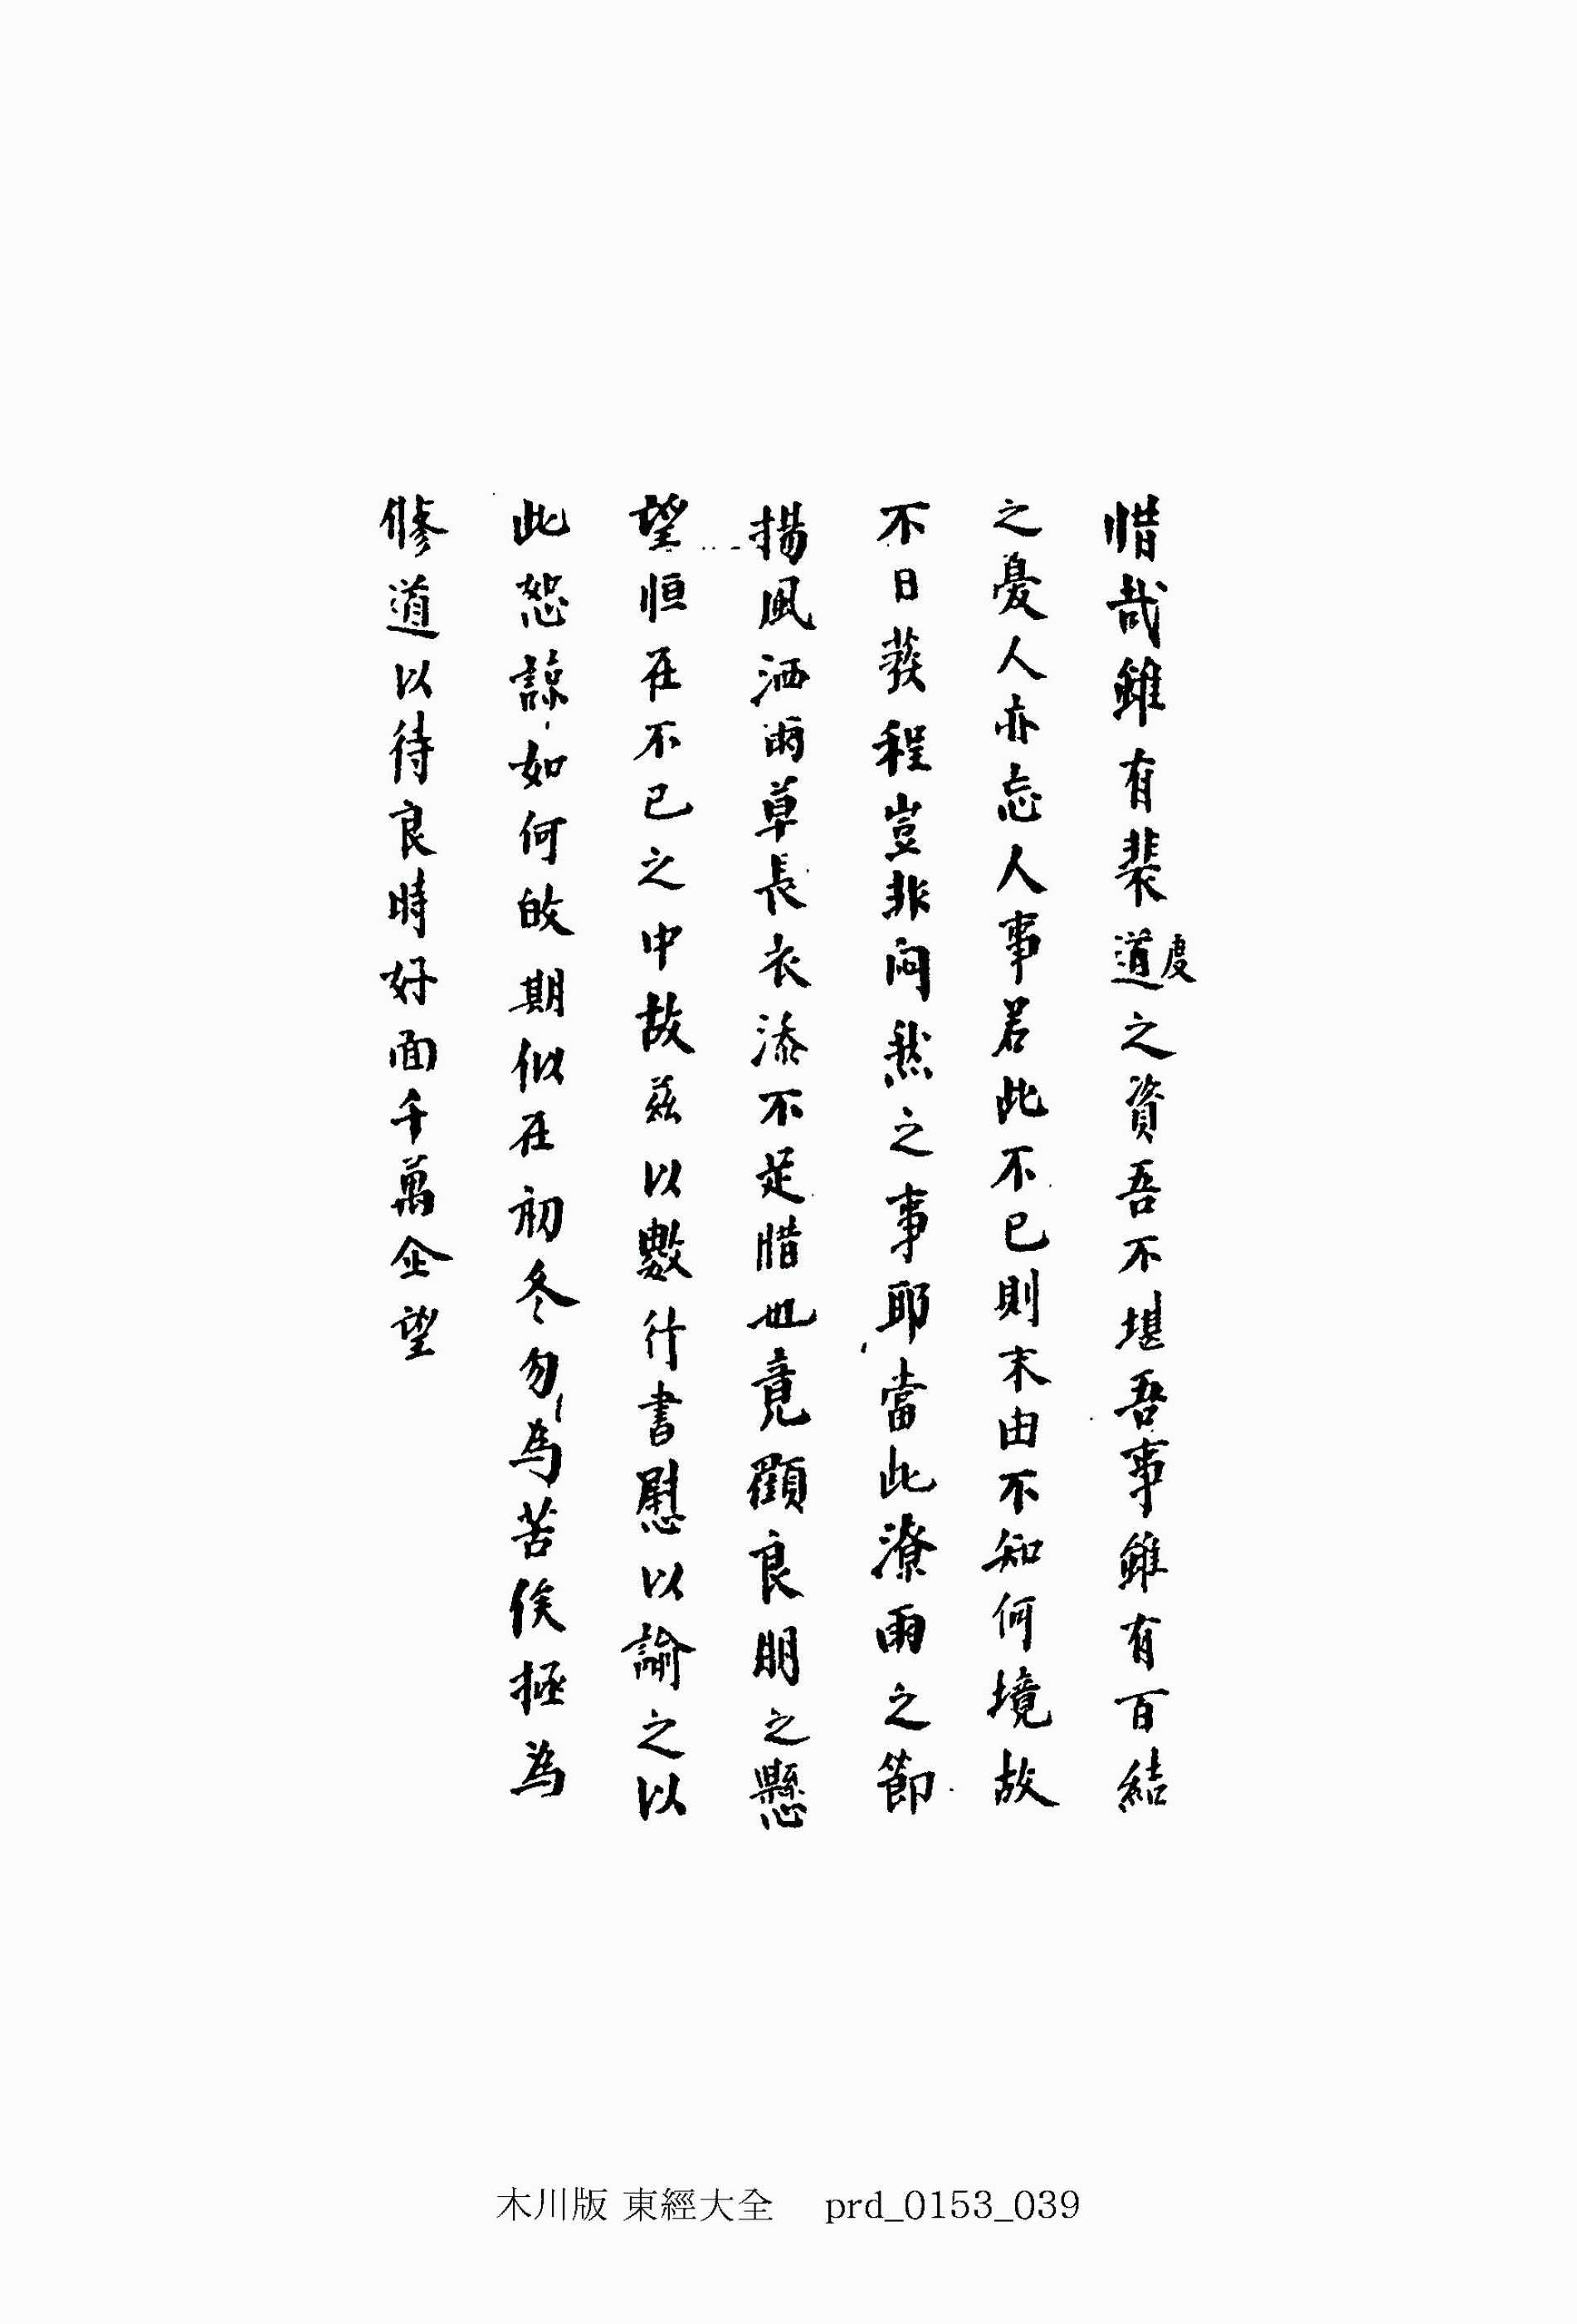 惜哉雖有裴道度之資吾不堪吾事雖有百結
之憂人亦忘人事若此不已則末由不知何境故
不日發程豈非悶然之事耶當此潦雨之節
揚風洒雨草長衣添不足惜也竟顧良朋之懸
望恒在不已之中故玆以數行書慰以諭之以
此恕諒如何皈期似在初冬勿為苦俟極為
修道以待良時好面千萬企望
木川版 東經大全 prd_0153_039